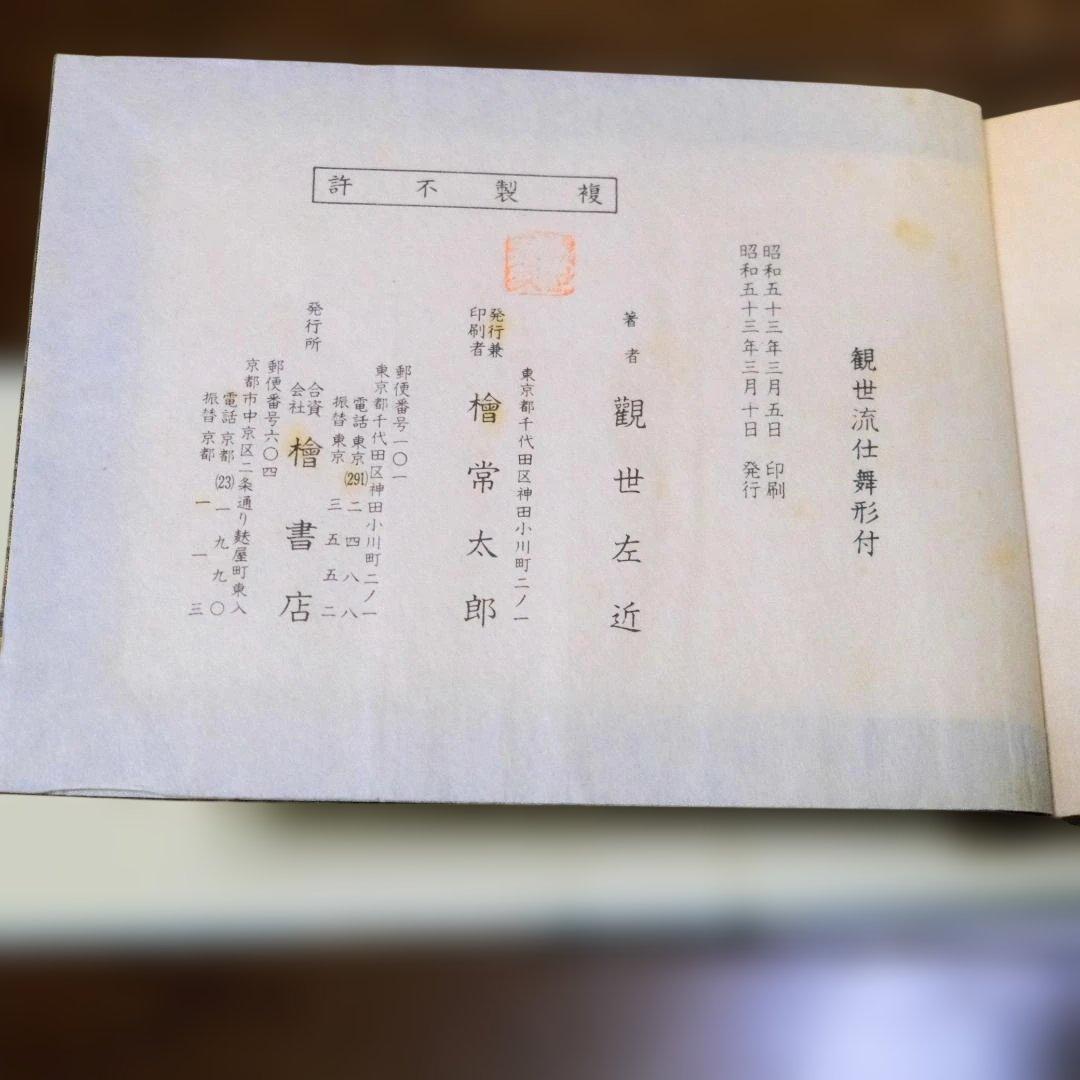 複製不許
観世流仕舞形付
昭和五十三年三月五日 印刷
昭和五十三年三月十日 発行
著者 觀世左近
東京都千代田区神田小川町二ノ一
発行兼
印刷者
檜常太郎
郵便番号一〇一
東京都千代田区神田小川町二ノ一
電話 東京 (291) 二四八八
振替 東京 三五五二
発行所
合資
会社
檜書店
郵便番号六〇四
京都市中京区二条通り麩屋町東入
電話 京都 (23) 一九九〇
振替 京都 一一三